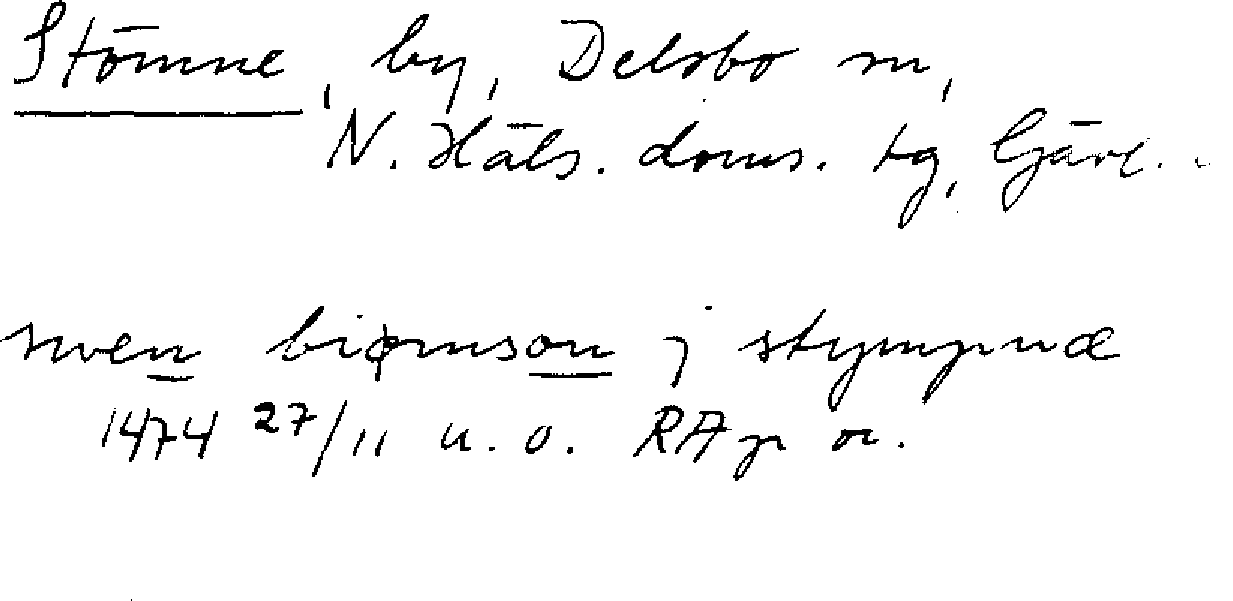 Stömne, by, Delsbo sn,
N. Häls. doms. tg, Gävl.
swen biørnson j stympnæ
1474 27/11 u. o. RAp or.